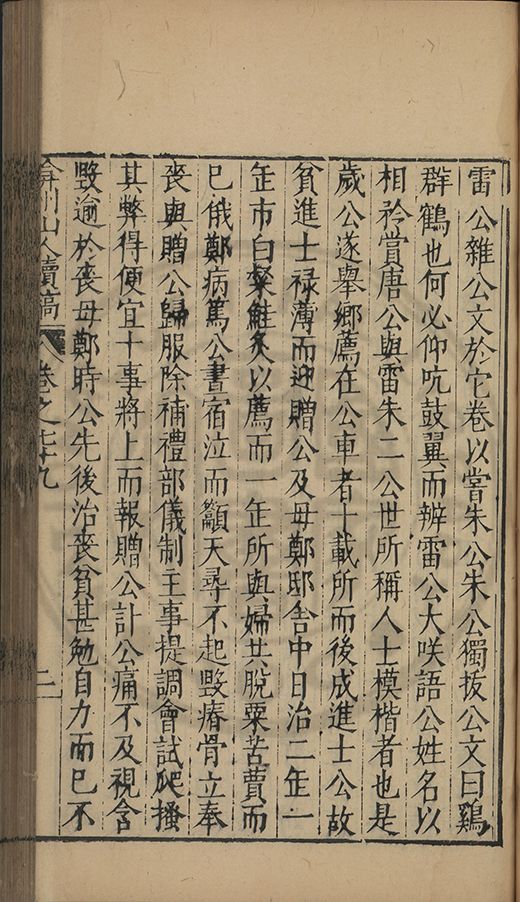 雷公雜公文於它卷以嘗朱公朱公獨拔公文曰鷄
群鶴也何必仰吭鼓翼而辨雷公大咲語公姓名以
相矜賞唐公與雷朱二公世所稱人士模楷者也是
歲公遂舉鄉薦在公車者十載所而後成進士公故
貧進士禄薄而迎贈公及母鄭邸舎中日治二𤯔一
𤯔市白粲鮭炙以薦而一𤯔所與婦共脫粟苦蕒而
已俄鄭病篤公書宿泣而籲天尋不起毀瘠骨立奉
喪與贈公歸服除補禮部儀制主事提調會試爬搔
其弊得便宜十事將上而報贈公訃公痛不及視含
毀逾於喪母鄭時公先後治喪貧甚勉自力而已不
弇州山人續稿 卷之七十九 二